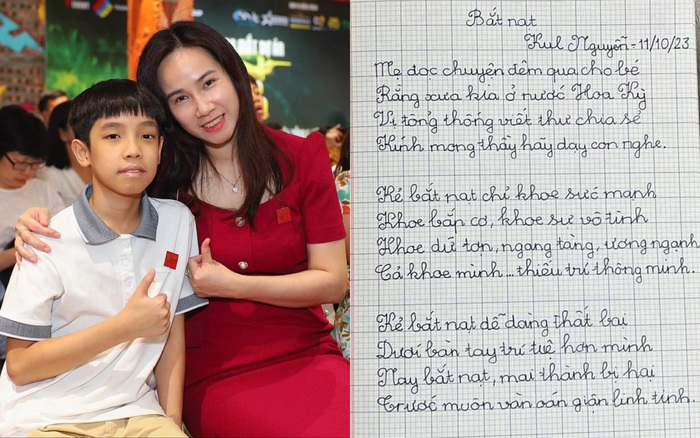 Bắt nạt
Kul Nguyễn - 11/10/23
Mẹ đọc chuyện đêm qua cho bé
Rằng xưa kia ở nước Hoa Kỳ
Vị tổng thống viết thư chia sẻ
Kính mong thầy hãy dạy con nghe.
Kẻ bắt nạt chỉ khoe sức mạnh
Khoe bắp cơ, khoe sự vô tình
Khoe dữ tợn, ngang tàng, ương ngạnh
Cả khoe mình... thiếu trí thông minh.
Kẻ bắt nạt dễ dàng thất bại
Dưới bàn tay trí tuệ hơn mình
Nay bắt nạt, mai thành bị hại
Trước muôn vàn oán giận linh tinh.